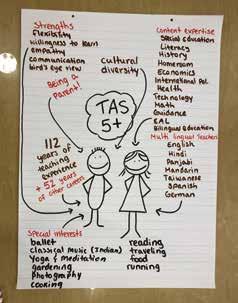 strengths
flexibility
willingness to learn
empathy
communication
bird's eye view
Being a
parent!
cultural
diversity
TAS
5+
112
years of
teaching
experience
+ 52 years
of other careers
content expertise
Special Education
Literacy
History
Homeroom
Economics
International Pol.
Health
Technology
Math
Guidance
EAL
Bilingual Education
Multi lingual Teachers
English
Hindi
Panjabi
Mandarin
Taiwanese
Spanish
German
Special interests
ballet
classical music (Indian)
Yoga & meditation
gardening
photography
cooking
reading
traveling
food
running